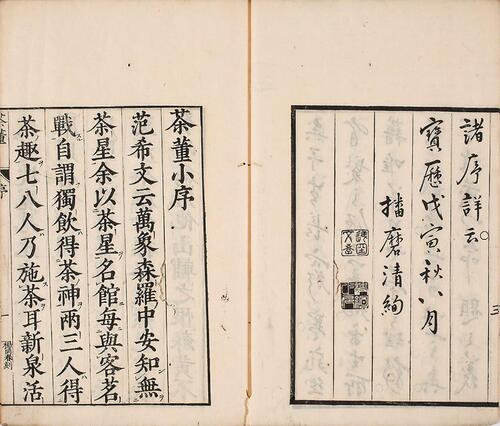 諸序詳云
寶曆戊寅秋八月
播磨清絢
三
茶董小序
范希文云萬象森羅中安知無
茶星余以茶星名館每與客茗
戰自謂獨飲得茶神兩三人得
茶趣七八人乃施茶耳新泉活
茶董
序
一